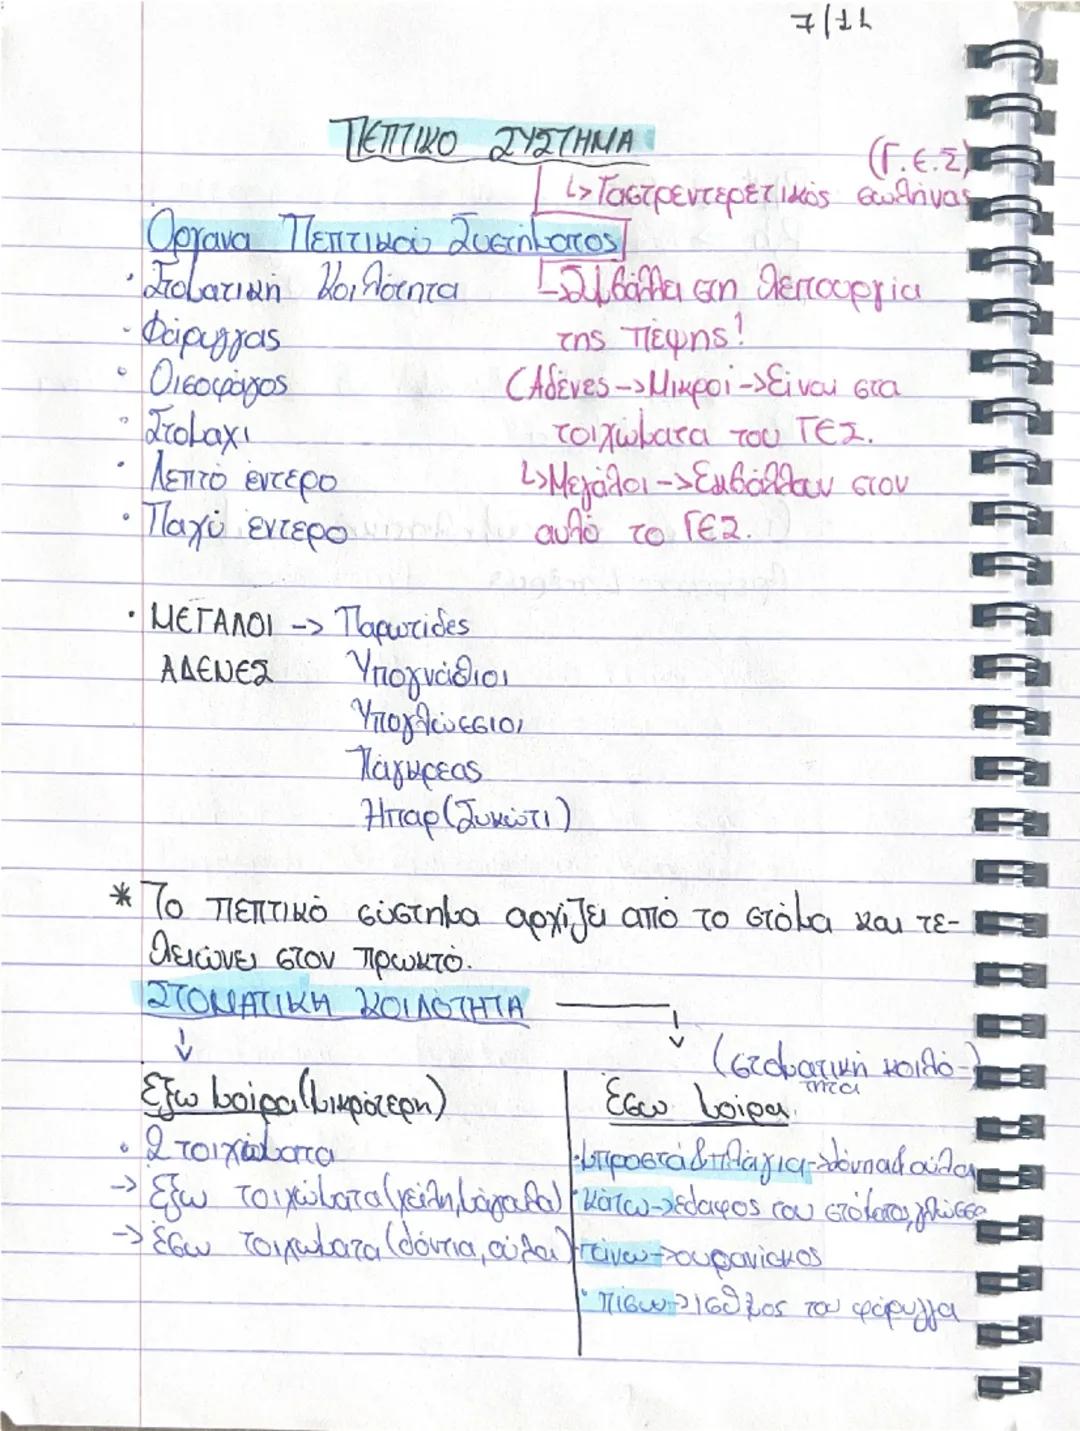 7/11
ΠΕΠΤΙΚΟ ΣΥΣΤΗΜΑ
(Γ.Ε.Σ)
↳> Γαστρεντερετικός σωλήνας
Όργανα Πεπτικού Συστήματος
· Στοματική κοιλότητα
↳Συμβάλλει στη λειτουργία
· Φάρυγγας
της πέψης!
· Οισοφάγος
(Αδένες -> Μικροί -> Είναι στα
· Στομάχι
τοιχώματα του ΓΕΣ.
· Λεπτό έντερο
↳>Μεγάλοι -> Εκβάλλουν στον
· Παχύ έντερο
αυλό το ΓΕΣ.
· ΜΕΓΑΛΟΙ -> Παρωτίδες
ΑΔΕΝΕΣ Υπογνάθιοι
Υπογλώσσιοι
Πάγκρεας
Ήπαρ (Συκώτι)
* Το πεπτικό σύστημα αρχίζει από το στόμα και τε-
λειώνει στον πρωκτό.
ΣΤΟΜΑΤΙΚΗ ΚΟΙΛΟΤΗΤΑ
(στοματική κοιλό-
τητα
Έξω μοίρα (μικρότερη)
Έσω μοίρα.
· 2 τοιχώματα
-> Έξω τοιχώματα (χείλη, μάγουλα)
-> Έσω τοιχώματα (δόντια, ούλα)
· μπροστά & πλάγια -> δόντια & ούλα
· κάτω -> έδαφος του στόματος, γλώσσα
· πάνω -> ουρανίσκος
· πίσω -> ισθμός του φάρυγγα